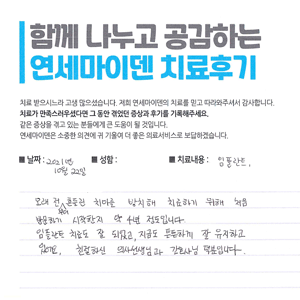 함께 나누고 공감하는
연세마이덴 치료후기
치료 받으시느라 고생 많으셨습니다. 저희 연세마이덴의 치료를 믿고 따라와주셔서 감사합니다.
치료가 만족스러우셨다면 그 동안 겪었던 증상과 후기를 기록해주세요.
같은 증상을 겪고 있는 분들에게 큰 도움이 될 것입니다.
연세마이덴은 소중한 의견에 귀 기울여 더 좋은 의료서비스로 보답하겠습니다.
■ 날짜: 2021년 ■ 성함: ■ 치료내용: 임플란트,
10월 22일
오래 전 흔들린 치아를 방치해 치료하기 위해 처음
방문하기 시작한지 약 4년 정도입니다.
임플란트 치료도 잘 되었고, 지금도 튼튼하게 잘 유지하고
있어요, 친절하신 의사선생님과 간호사님 덕분입니다.